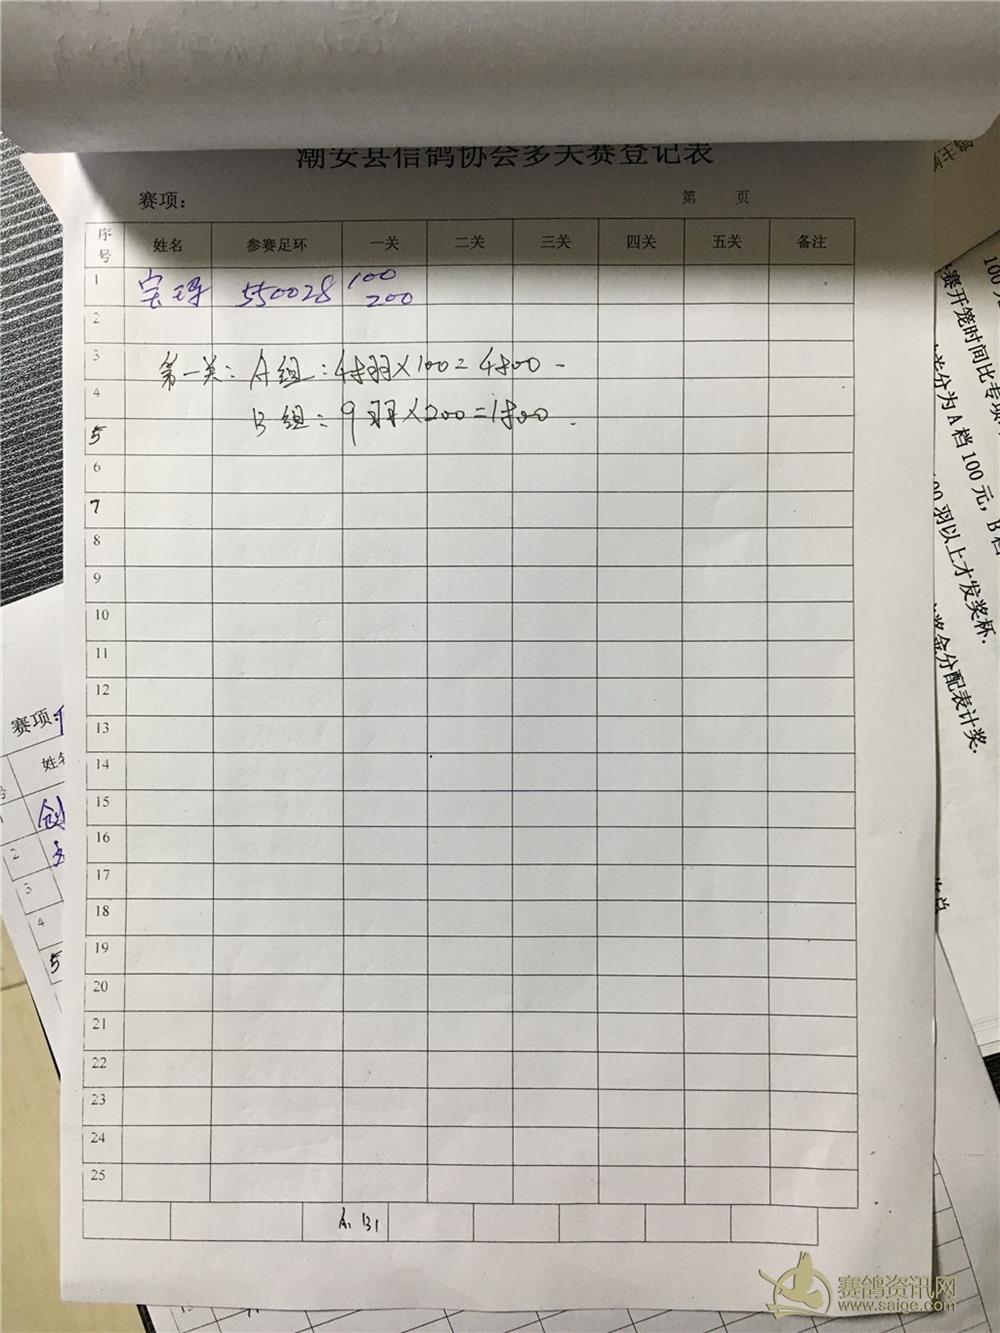 潮安县信鸽协会多关赛登记表
赛项：
第 页
序号 姓名 参赛足环 一关 二关 三关 四关 五关 备注
1 550028 100
200
2
3
第一关：A组：48羽×100=4800
4
B组：9羽×200=1800
5
6
7
8
9
10
11
12
13
14
15
16
17
18
19
20
21
22
23
24
25
A1 B1
赛项：
姓名
号
1 创
2
3
4
5
100元
赛开笼时间比专项
分为A档100元，B档
00羽以上才发奖杯.
奖金分配表计奖.
赛鸽资讯网
www.saige.com